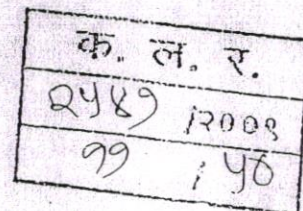 क. ल. र.
२५४१ /२००९
११ / ५८